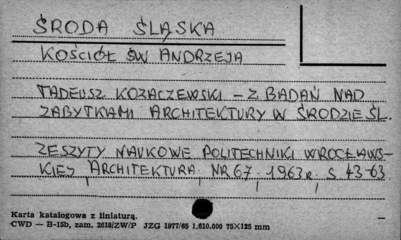 ŚRODA ŚLĄSKA
KOŚCIÓŁ ŚW ANDRZEJA
TADEUSZ KOZACZEWSKI – Z BADAŃ NAD
ZABYTKAMI ARCHITEKTURY W ŚRODZIE ŚL.
ZESZYTY NAUKOWE POLITECHNIKI WROCŁAWS-
KIEJ ARCHITEKTURA. NR 67. 1963r. s 43-63
Karta katalogowa z liniaturą.
CWD — B-15b, zam. 2618/ZW/P JZG 1977/65 1.610.000 75X125 mm